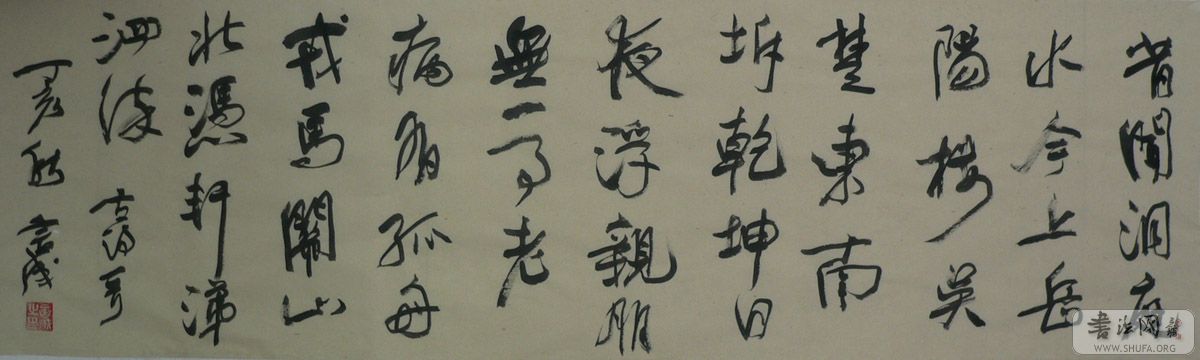 昔聞洞庭
水今上岳
陽樓吳
楚東南
坼乾坤日
夜浮親朋
無一字老
病有孤舟
戎馬關山
北憑軒涕
泗流 古詩一首
丁亥秋
書法网
WWW.SHUFA.ORG